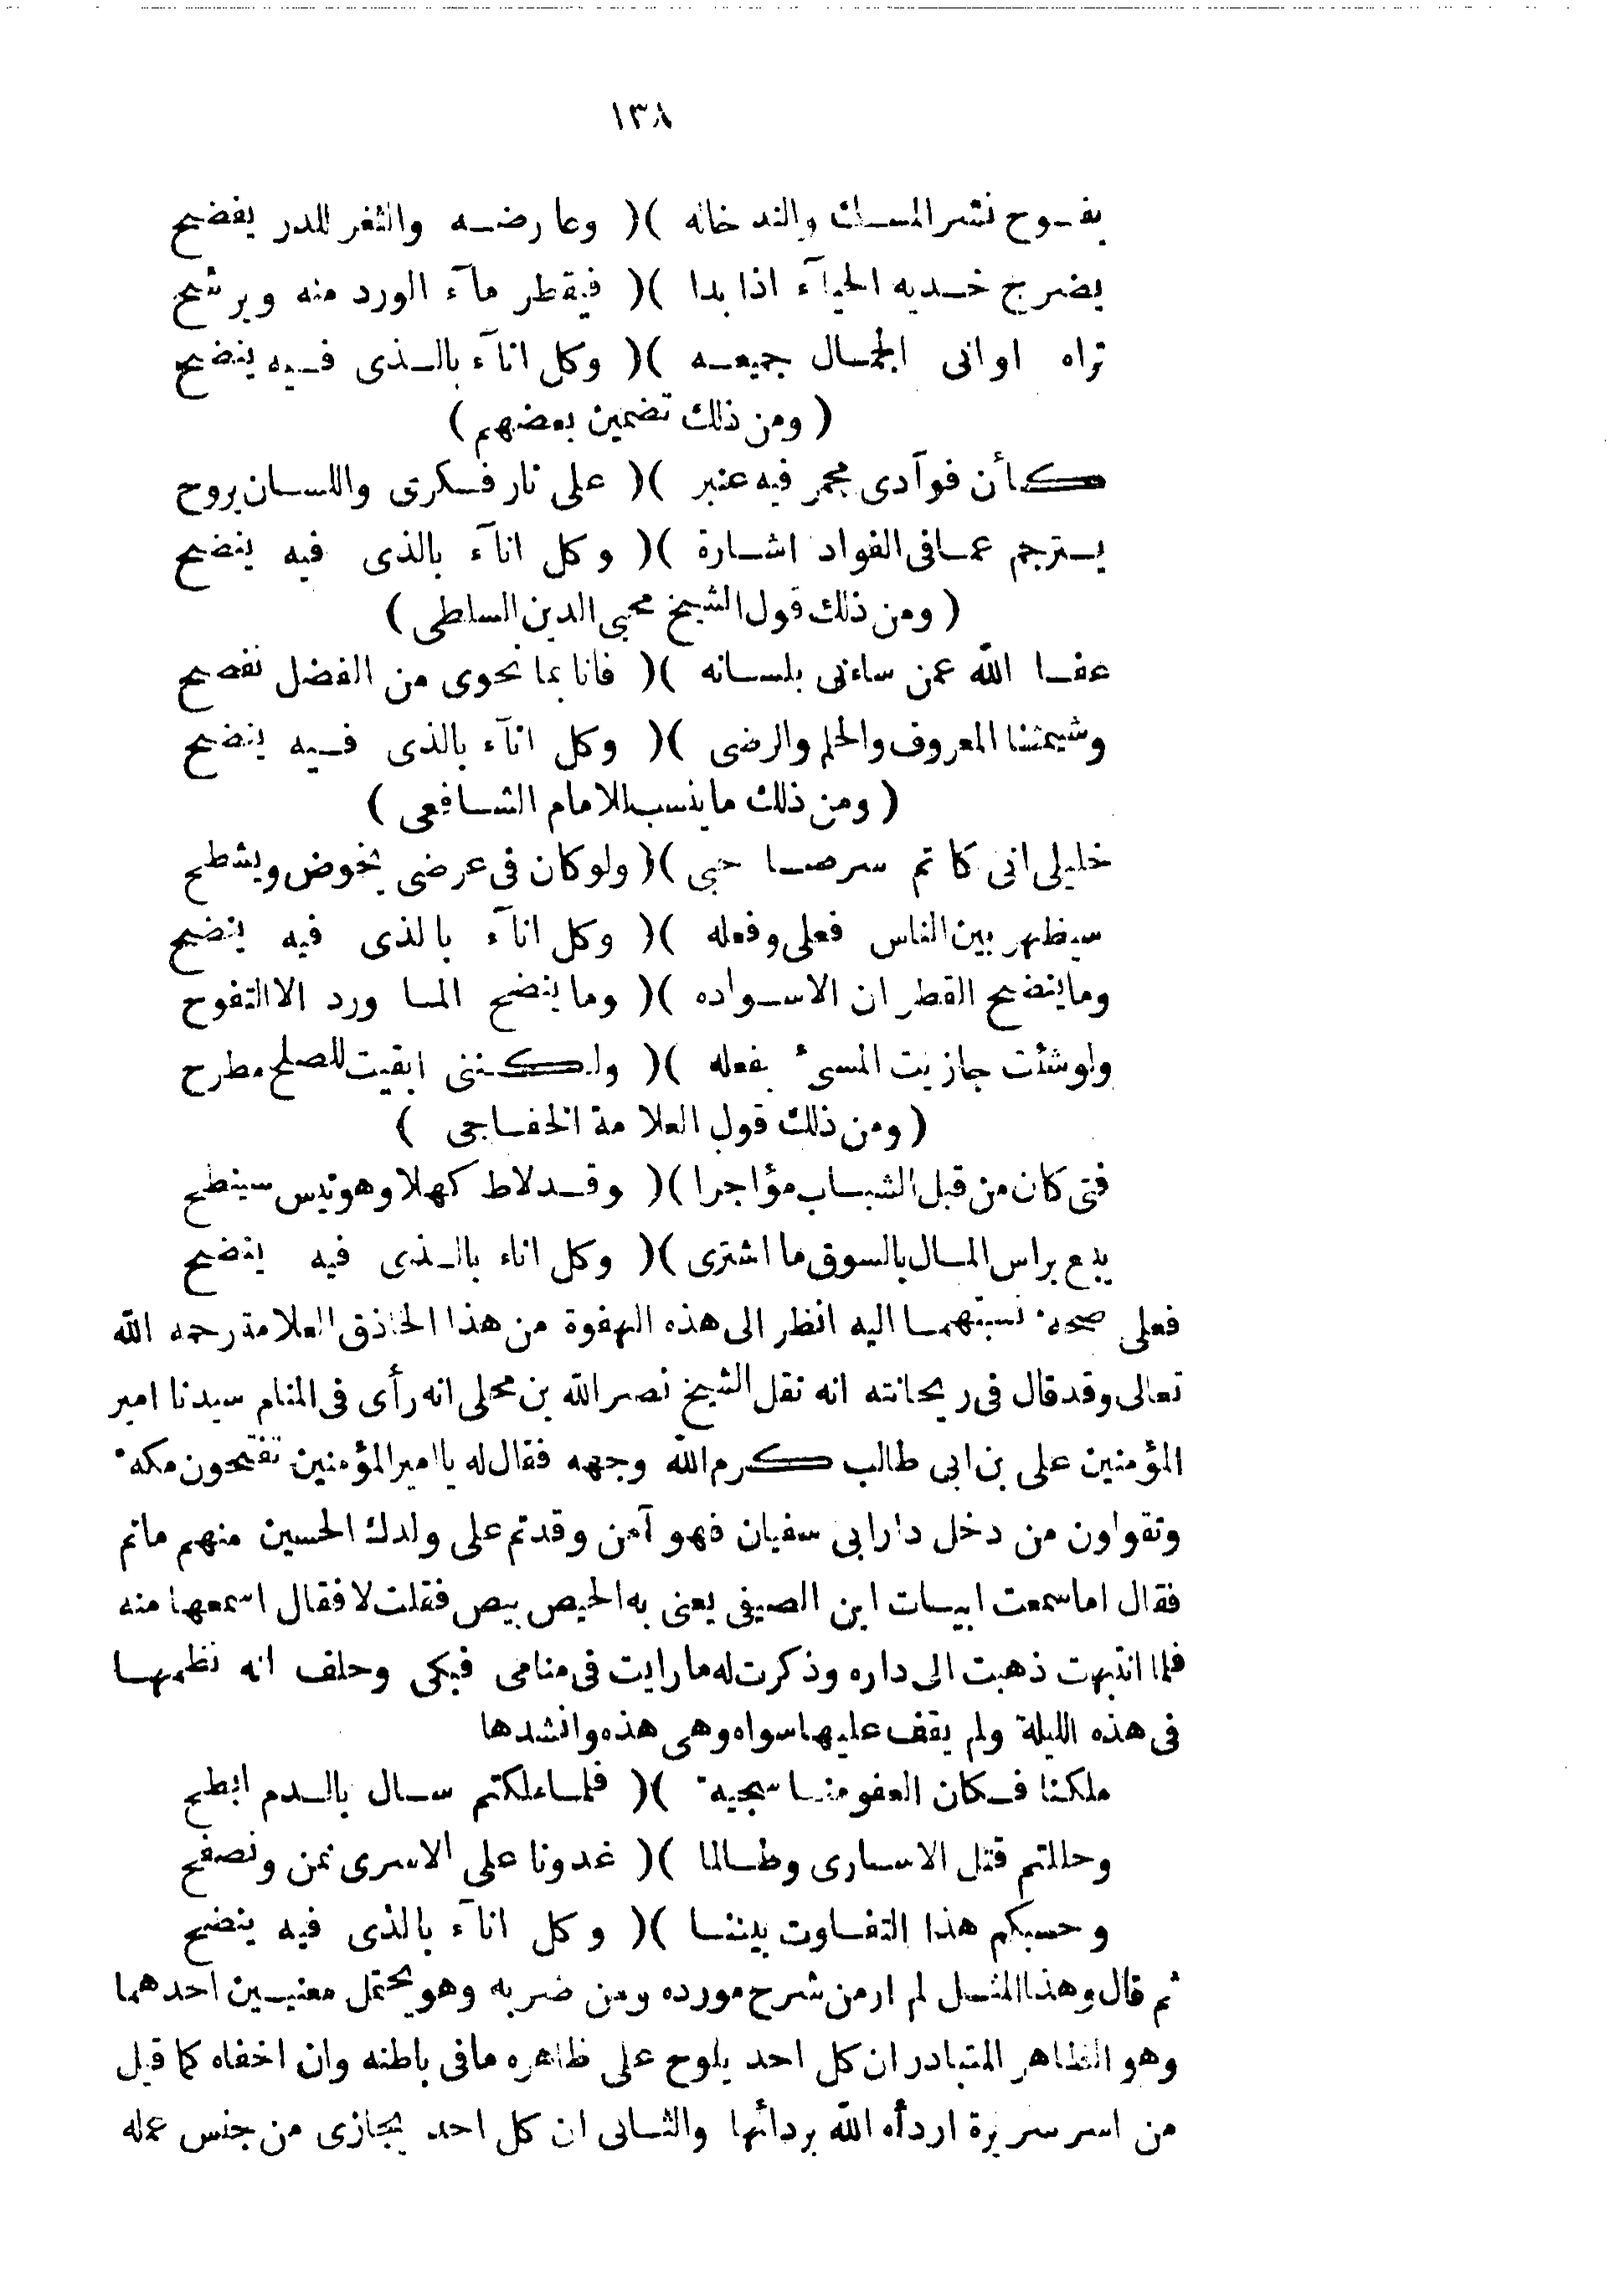 ١٣٨
يفوح نشر المسك والند خاله )( وعارضه والثغر للدر يفضح
يضرج خديه الحيآء اذا بدا )( فيقطر مآء الورد منه ويرشح
تراه اوانى الجمال جميعه )( وكل انآء بالذى فيه ينضح
( ومن ذلك تضمين بعضهم )
كأن فوآدى مجمر فيه عنبر )( على نار فكرى واللسان يروح
يترجم عما فى الفواد اشارة )( وكل انآء بالذى فيه ينضح
( ومن ذلك قول الشيخ محيى الدين السلطى )
عفا الله عمن ساءنى بلسانه )( فانا بما نحوى من الفضل نفصح
وشيمتنا المعروف والحلم والرضى )( وكل انآء بالذى فيه ينضح
( ومن ذلك ما ينسب للامام الشافعى )
خليلى انى كاتم سر صاحبى )( ولو كان فى عرضى يخوض ويشطح
سيظهر بين الناس فعلى وفعله )( وكل انآء بالذى فيه ينضح
وما ينضح القطران الا سواده )( وما ينضح الماورد الا التفوح
ولو شئت جازيت المسىء بفعله )( ولكننى ابقيت للصلح مطرح
( ومن ذلك قول العلامة الخفاجى )
فتى كان من قبل الشباب مؤاجرا )( وقد لاط كهلا وهو تيس سينطح
يبع براس المال بالسوق ما اشترى )( وكل اناء بالذى فيه ينضح
فعلى صحة نسبتهما اليه انظر الى هذه الهفوة من هذا الحاذق العلامة رحمه الله
تعالى وقد قال فى ريحانته انه نقل الشيخ نصر الله بن محلى انه رأى فى المنام سيدنا امير
المؤمنين على بن ابى طالب كرم الله وجهه فقال له يا امير المؤمنين تفتحون مكة
وتقولون من دخل دار ابى سفيان فهو آمن وقد تم على ولدك الحسين منهم ما تم
فقال اما سمعت ابيات ابن الصيفى يعنى به الحيص بيص فقلت لا فقال اسمعها منه
فلما انتبهت ذهبت الى داره وذكرت له ما رايت فى منامى فبكى وحلف انه نظمها
فى هذه الليلة ولم يقف عليها سواه وهى هذه وانشدها
ملكنا فكان العفو منا سجية )( فلما ملكتم سال بالدم ابطح
وحللتم قتل الاسارى وطالما )( غدونا على الاسرى نمن ونصفح
وحسبكم هذا التفاوت بيننا )( وكل انآء بالذى فيه ينضح
ثم قال وهذا المثل لم ار من شرح مورده ومن ضربه وهو يحتمل معنيين احدهما
وهو الظاهر المتبادر ان كل احد يلوح على ظاهره ما فى باطنه وان اخفاه كما قيل
من اسر سريرة ارداه الله بردائها والثانى ان كل احد يجازى من جنس عمله